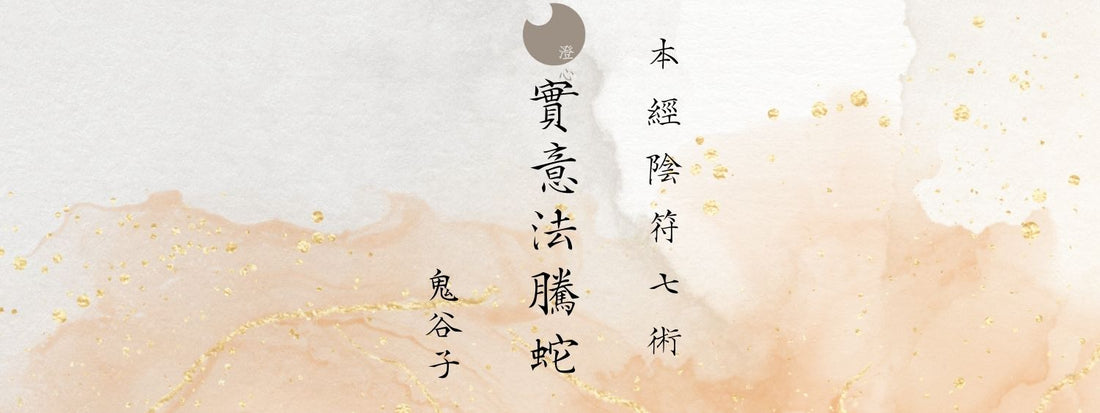 本經陰符七術
實意法騰蛇
鬼谷子
澄心